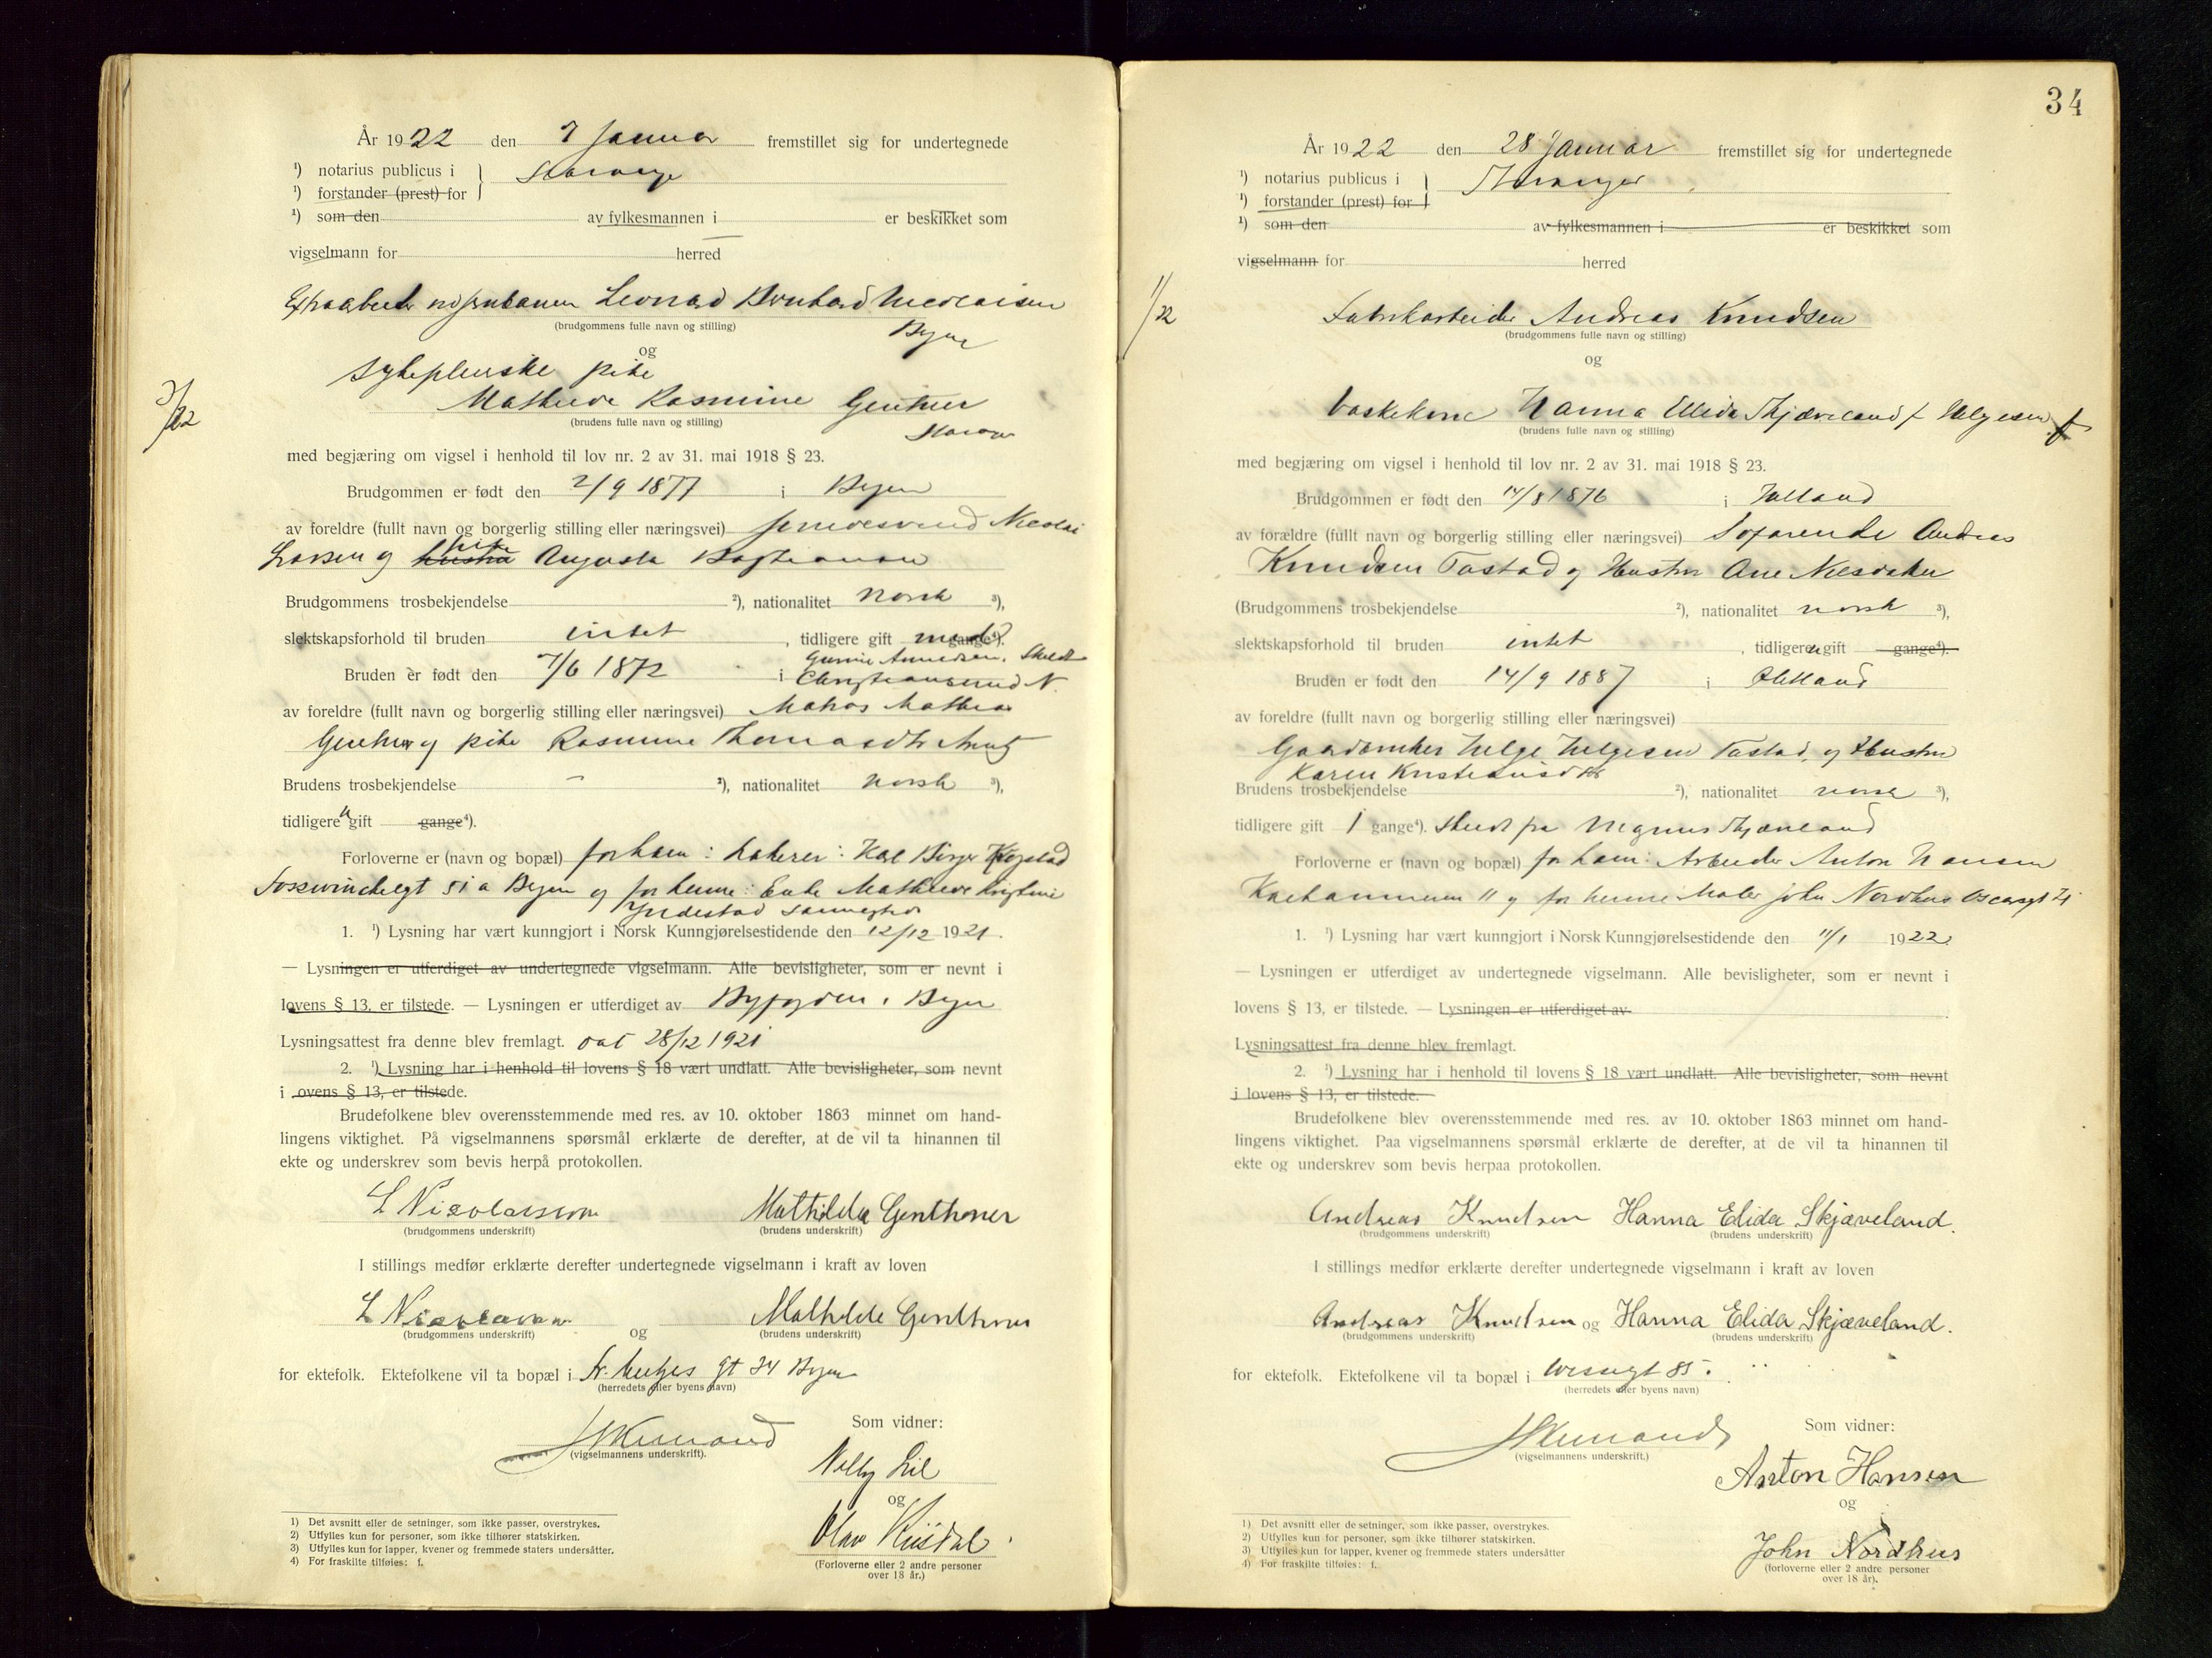 År 1922 den 7 Januar fremstillet sig for undertegnede
¹) notarius publicus i
¹) forstander (prest) for
¹) som den av fylkesmannen i er beskikket som
vigselmann for herred
Leonard Nicolaisen
(brudgommens fulle navn og stilling)
Bergen
og
sykepleierske pike
Rasmine
(brudens fulle navn og stilling)
med begjæring om vigsel i henhold til lov nr. 2 av 31. mai 1918 § 23.
Brudgommen er født den 2/9 1877 i Bergen
av foreldre (fullt navn og borgerlig stilling eller næringsvei) Nicolai
Larsen og pike Augusta
Brudgommens trosbekjendelse ²), nationalitet norsk ³),
slektskapsforhold til bruden intet , tidligere gift gange⁴).
Bruden er født den 7/6 1872 i Christiansund N.
av foreldre (fullt navn og borgerlig stilling eller næringsvei) Matros Mathias
og pike Rasmine
Brudens trosbekjendelse - ²), nationalitet norsk ³),
tidligere gift gange⁴).
Forloverne er (navn og bopæl) for ham: Karl Birger
51 a Bergen og for henne: Enke Mathilde
1. ¹) Lysning har vært kunngjort i Norsk Kunngjørelsestidende den 12/12 1921.
— Lysningen er utferdiget av undertegnede vigselmann. Alle bevisligheter, som er nevnt i
lovens § 13, er tilstede. — Lysningen er utferdiget av Byfogden i Bergen
Lysningsattest fra denne blev fremlagt. dat 28/12 1921
2. ¹) Lysning har i henhold til lovens § 18 vært undlatt. Alle bevisligheter, som nevnt
i ovens § 13, er tilstede.
Brudefolkene blev overensstemmende med res. av 10. oktober 1863 minnet om hand-
lingens viktighet. På vigselmannens spørsmål erklærte de derefter, at de vil ta hinannen til
ekte og underskrev som bevis herpå protokollen.
L Nicolaissen Mathilde Genthner
(brudgommens underskrift) (brudens underskrift)
I stillings medfør erklærte derefter undertegnede vigselmann i kraft av loven
L Nicolaissen Mathilde Genthner
(brudgommens underskrift) og (brudens underskrift)
for ektefolk. Ektefolkene vil ta bopæl i gt 34 Bergen
(herredets eller byens navn)
Som vidner:
(vigselmannens underskrift).
Nelly
og
Olav
(Forloverne eller 2 andre personer
over 18 år.)
1) Det avsnitt eller de setninger, som ikke passer, overstrykes.
2) Utfylles kun for personer, som ikke tilhører statskirken.
3) Utfylles kun for lapper, kvener og fremmede staters undersåtter.
4) For fraskilte tilføies: f.
34
År 1922 den 28 Januar fremstillet sig for undertegnede
¹) notarius publicus i Stavanger
¹) forstander (prest) for
¹) som den av fylkesmannen i er beskikket som
vigselmann for herred
1/22
Fabrikarbeider Andreas Knudsen
(brudgommens fulle navn og stilling)
og
Vaskekone Hanna Elida Skjæveland f Helgesen f
(brudens fulle navn og stilling)
med begjæring om vigsel i henhold til lov nr. 2 av 31. mai 1918 § 23.
Brudgommen er født den 14/8 1876 i
av forældre (fullt navn og borgerlig stilling eller næringsvei) Sofarende Andreas
Knudsen Tastad og Hustru Ane
(Brudgommens trosbekjendelse ²), nationalitet norsk ³),
slektskapsforhold til bruden intet , tidligere gift gange⁴).
Bruden er født den 14/9 1887 i
av foreldre (fullt navn og borgerlig stilling eller næringsvei)
Gaardbruker Helge Helgesen Tastad, og Hustru
Karen
Brudens trosbekjendelse ²), nationalitet norsk ³),
tidligere gift 1 gange⁴). skilt fra Skjæveland
Forloverne er (navn og bopæl) for ham: Arbeider Anton Hansen
11 og for henne Maler John Nordhus
1. ¹) Lysning har vært kunngjort i Norsk Kunngjørelsestidende den 11/1 1922.
— Lysningen er utferdiget av undertegnede vigselmann. Alle bevisligheter, som er nevnt i
lovens § 13, er tilstede. — Lysningen er utferdiget av
Lysningsattest fra denne blev fremlagt.
2. ¹) Lysning har i henhold til lovens § 18 vært undlatt. Alle bevisligheter, som nevnt
i lovens § 13, er tilstede.
Brudefolkene blev overensstemmende med res. av 10. oktober 1863 minnet om hand-
lingens viktighet. Paa vigselmannens spørsmål erklærte de derefter, at de vil ta hinannen til
ekte og underskrev som bevis herpaa protokollen.
Andreas Knudsen Hanna Elida Skjæveland.
(brudgommens underskrift) (brudens underskrift)
I stillings medfør erklærte derefter undertegnede vigselmann i kraft av loven
Andreas Knudsen og Hanna Elida Skjæveland.
(brudgommens underskrift) (brudens underskrift)
for ektefolk. Ektefolkene vil ta bopæl i 85.
(herredets eller byens navn)
Som vidner:
(vigselmannens underskrift.)
Anton Hansen
og
John Nordhus
(forloverne eller 2 andre personer
over 18 år).
1) Det avsnitt eller de setninger, som ikke passer, overstrykes.
2) Utfylles kun for personer, som ikke tilhører statskirken.
3) Utfylles kun for lapper, kvener og fremmede staters undersåtter
4) For fraskilte tilføies: f.